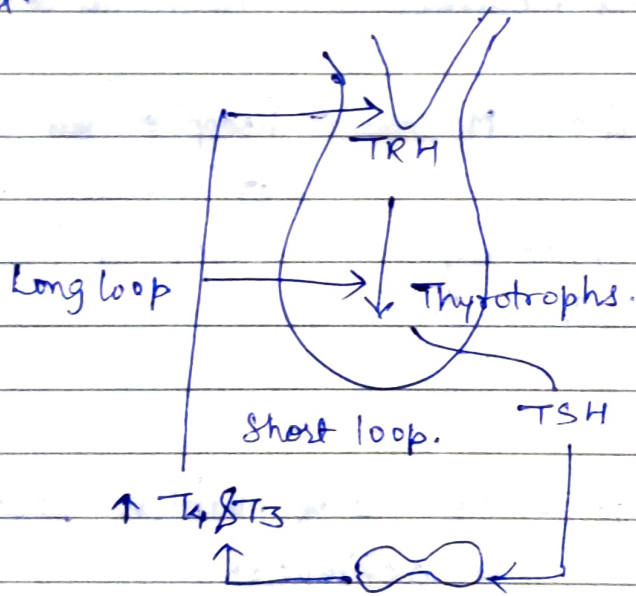 TRH
Long loop
Thyrotrophs.
TSH
Short loop.
↑ T4 & T3